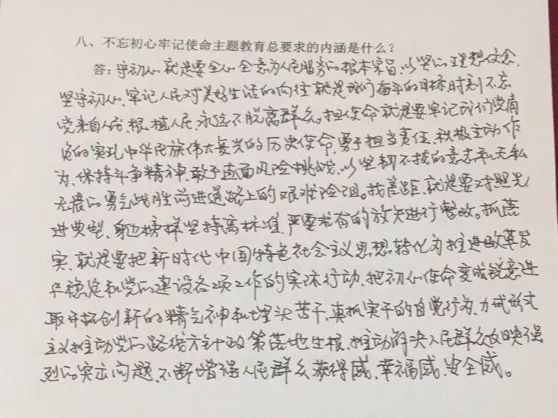 八、不忘初心牢记使命主题教育总要求的内涵是什么？
答：守初心，就是要全心全意为人民服务的根本宗旨，以坚定的理想信念
坚守初心，牢记人民对美好生活的向往就是我们奋斗的目标时刻不忘
党来自人民，根植人民，永远不脱离群众。担使命就是要牢记我们党肩
负的实现中华民族伟大复兴的历史使命，勇于担当责任，积极主动作
为，保持斗争精神，敢于直面风险挑战，以坚韧不拔的意志和无私
无畏的勇气战胜前进道路上的艰难险阻。找差距，就是要对照先
进典型、身边榜样坚持高标准、严要求有的放矢进行整改。抓落
实，就是要把新时代中国特色社会主义思想转化为推进改革发
展稳定和党的建设各项工作的实际行动，把初心使命变成锐意进
取开拓创新的精气神和埋头苦干、真抓实干的自觉行为，力戒形式
主义推动党的路线方针政策落地生根，推动解决人民群众反映强
烈的突出问题，不断增强人民群众获得感、幸福感、安全感。